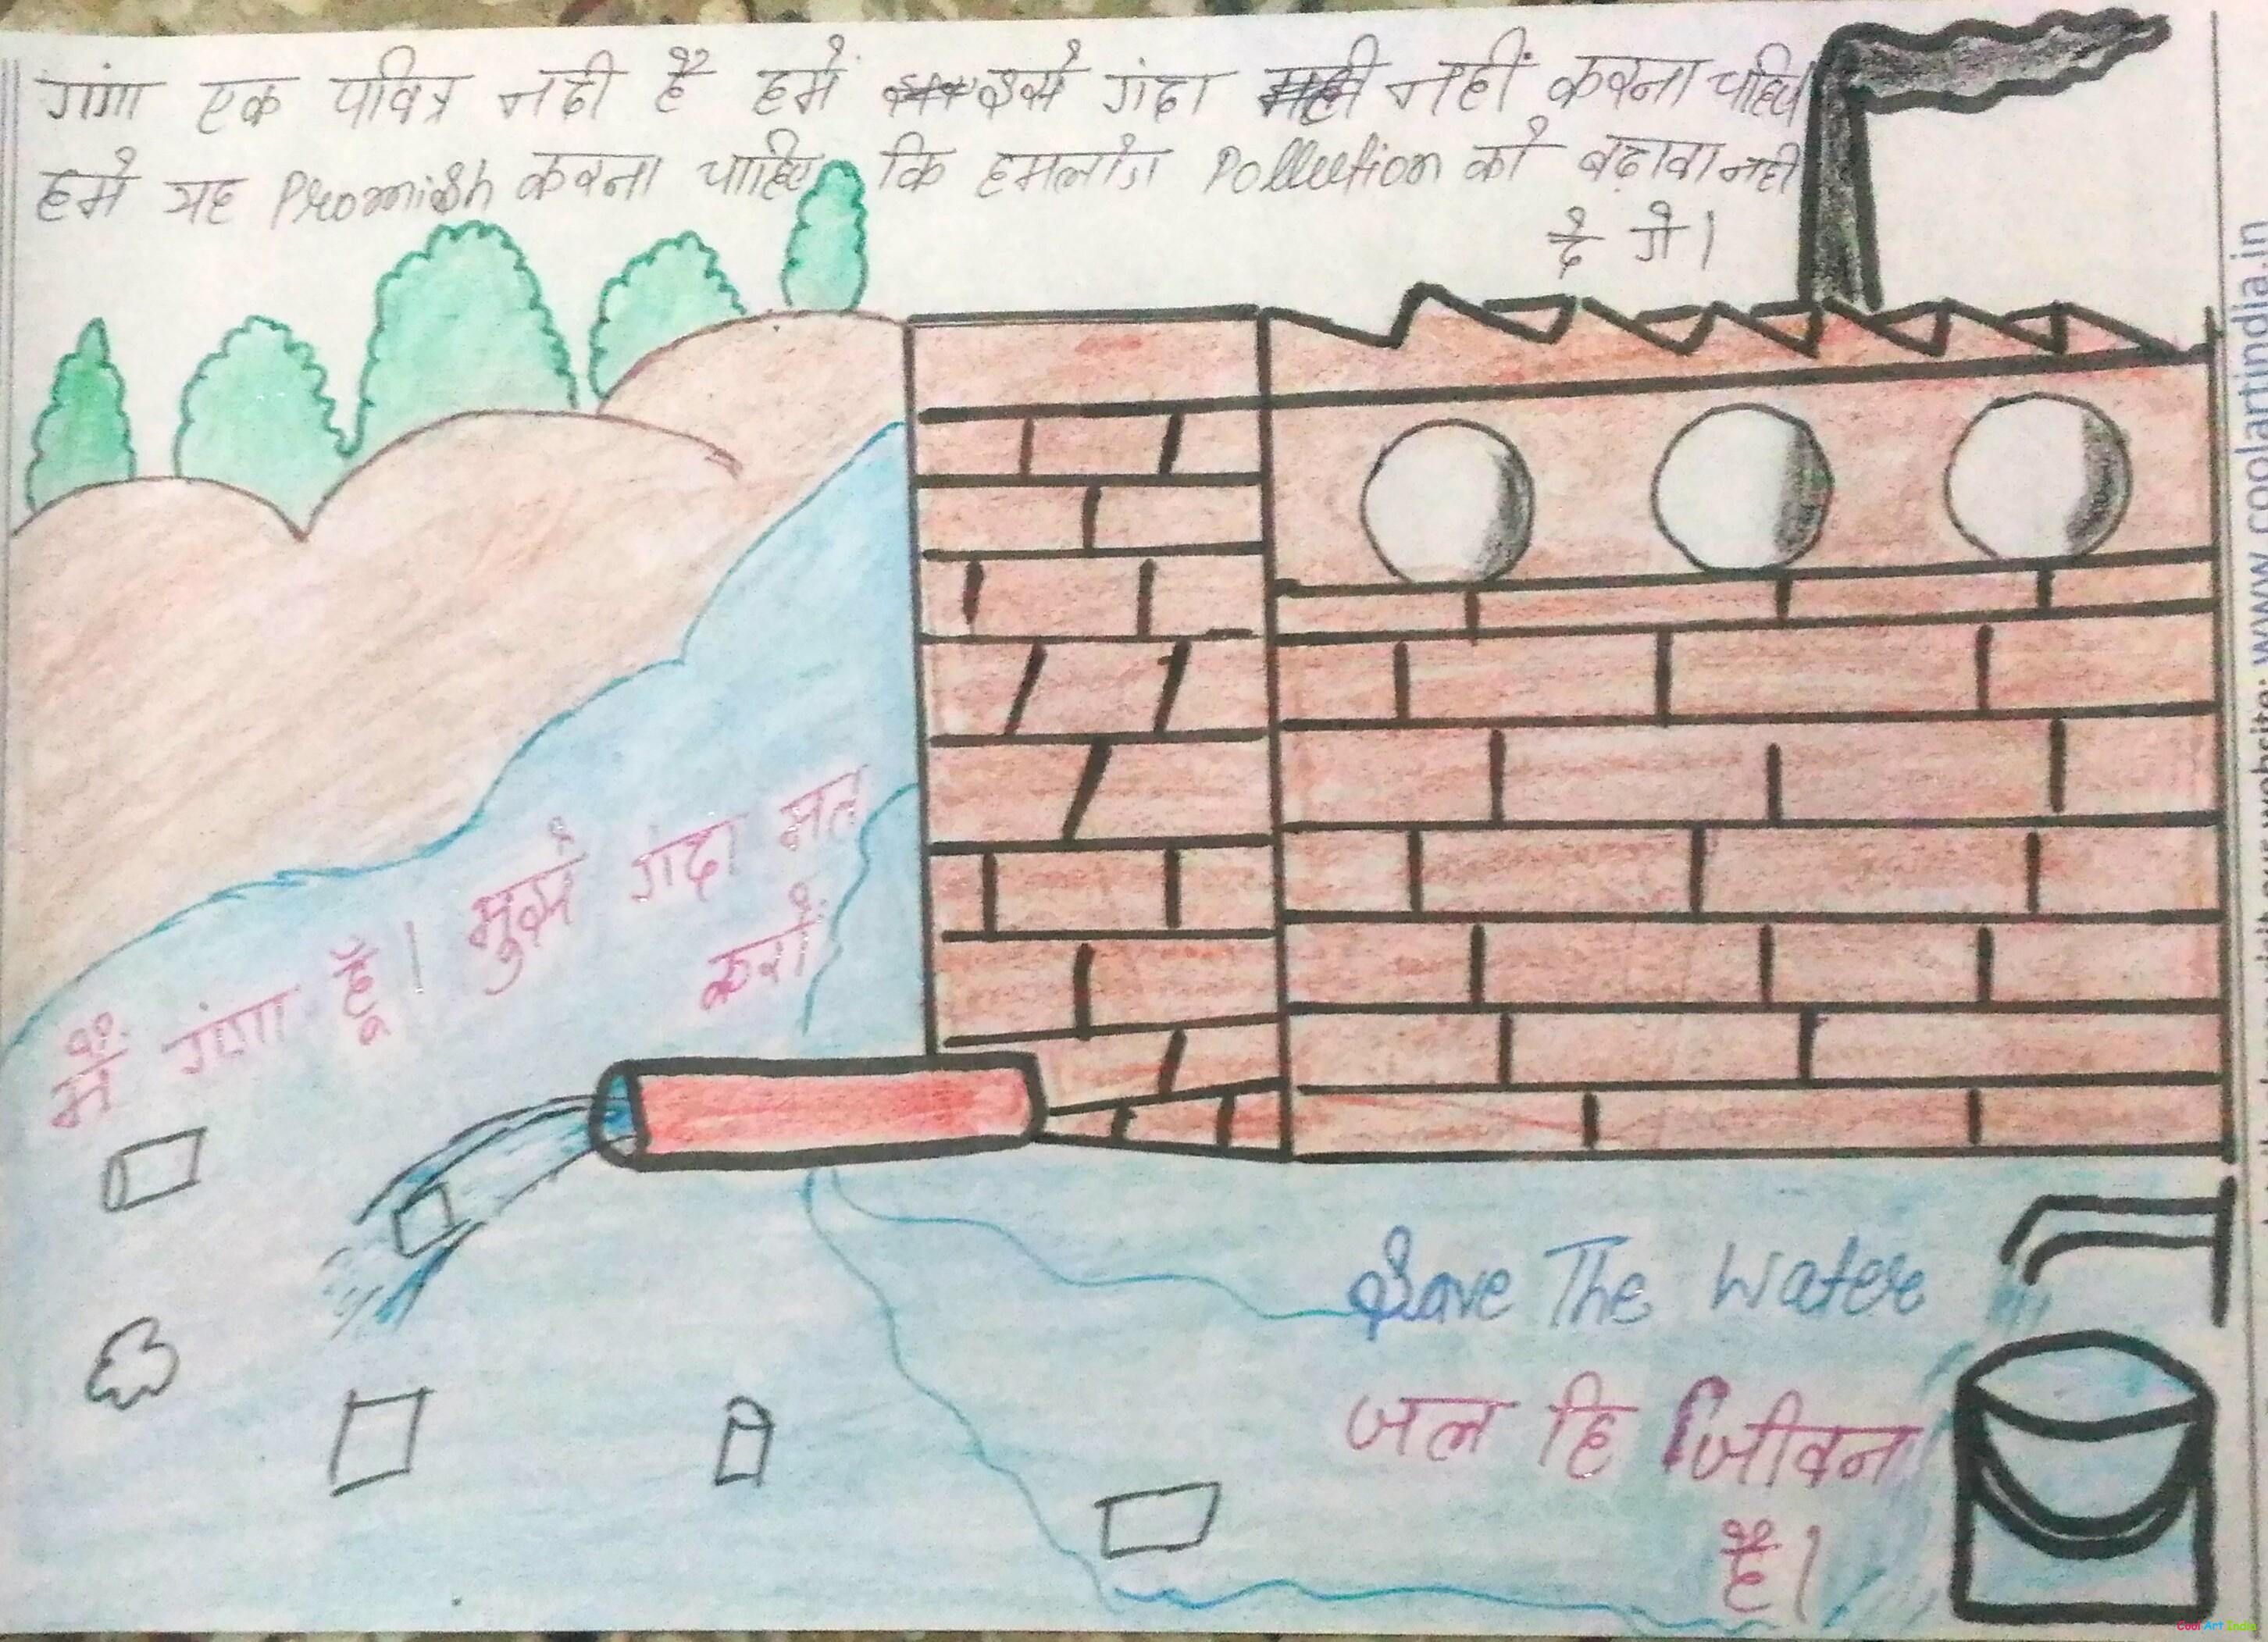 गंगा एक पवित्र नदी है हमें इसे गंदा नहीं करना चाहिए
हमें यह Promish करना चाहिए कि हमलोग Pollution को बढ़ावा नही
दे गे।
मैं गंगा हूँ। मुझे गंदा मत
करो
Save The Water
जल हि जीवन
है।
www.coolartindia.in
Cool Art India